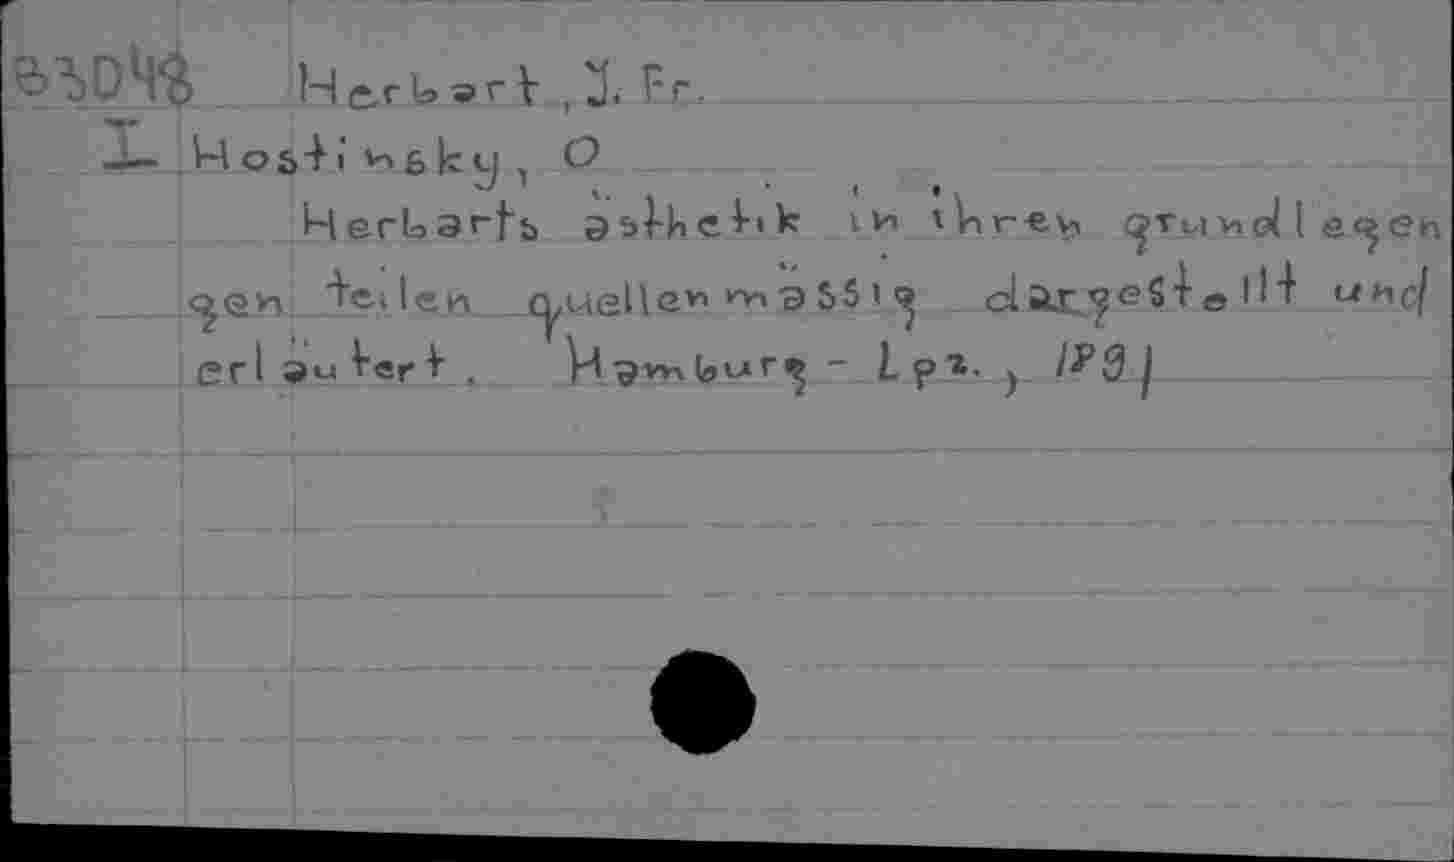 83048 Herbart, J. Fr.
I Hostinsky, O
Herbarts ästhetik in ihren grundlegen
gen teilen quellenmässig dargestellt und
erläutert. Hamburg - Lpz., 1891